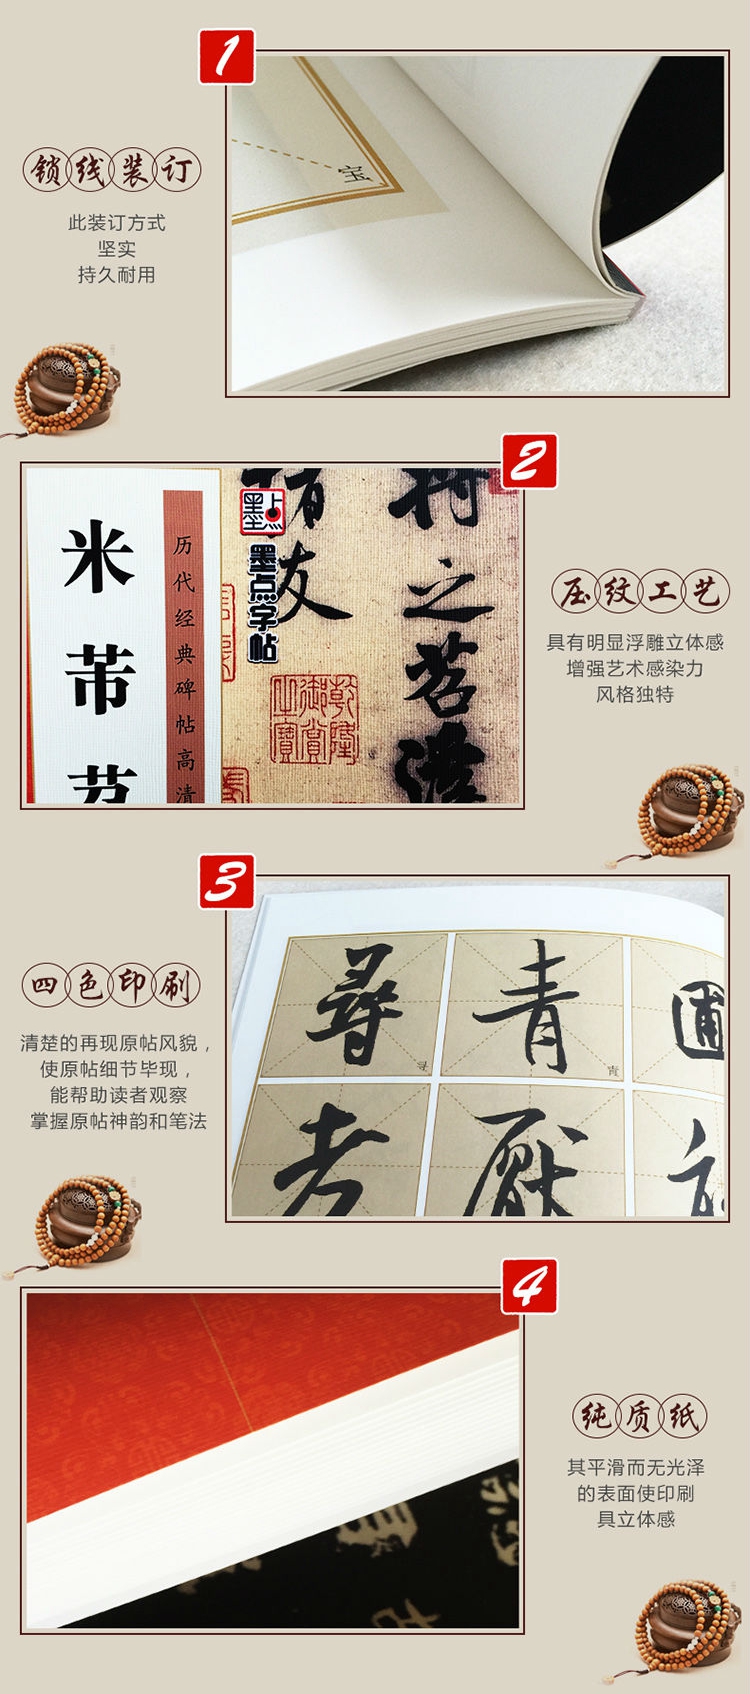 1
锁线装订
此装订方式
坚实
持久耐用
宝
2
米芾苕
历代经典碑帖高清
墨点
墨点字帖
友
将之苕溪
乾隆
御赏
之宝
压纹工艺
具有明显浮雕立体感
增强艺术感染力
风格独特
3
四色印刷
清楚的再现原帖风貌，
使原帖细节毕现，
能帮助读者观察
掌握原帖神韵和笔法
尋 青
寻 青
老 厭
4
纯质纸
其平滑而无光泽
的表面使印刷
具立体感